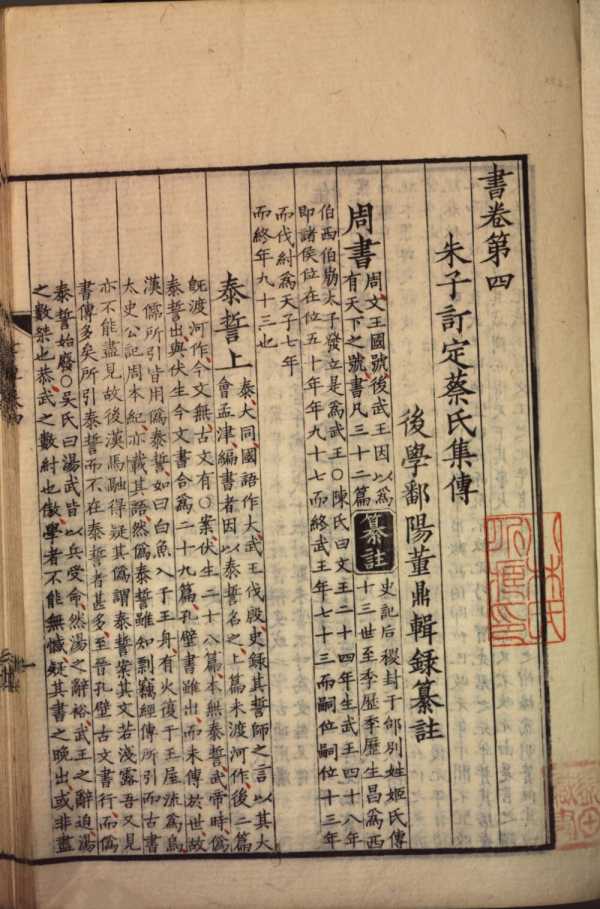 書卷第四
朱子訂定蔡氏集傳
後學鄱陽董鼎輯錄纂註
周書
周文王國號後武王因以爲
有天下之號書凡三十二篇
纂註
史記后稷封于邰別姓姬氏傳
十三世至季歷季歷生昌爲西
伯西伯崩太子發立是爲武王○陳氏曰文王二十四年生武王四十八年
即諸侯位在位五十年年九十七而終武王年七十三而嗣位嗣位十三年
而伐紂爲天子七年
而終年九十三也
泰誓上
泰大同國語作大武王伐殷史錄其誓師之言以其大
會孟津編書者因以泰誓名之上篇未渡河作後二篇
旣渡河作今文無古文有○案伏生二十八篇本無泰誓武帝時僞
泰誓出與伏生今文書合爲二十九篇孔壁書雖出而未傳於世故
漢儒所引皆用僞泰誓如曰白魚入于王舟有火復于王屋流爲烏
太史公記周本紀亦載其語然僞泰誓雖知剽竊經傳所引而古書
亦不能盡見故後漢馬融得疑其僞謂泰誓案其文若淺露吾又見
書傳多矣所引泰誓而不在泰誓者甚多至晉孔壁古文書行而僞
泰誓始廢○吳氏曰湯武皆以兵受命然湯之辭裕武王之辭迫湯
之數桀也恭武之數紂也傲學者不能無憾疑其書之晚出或非盡